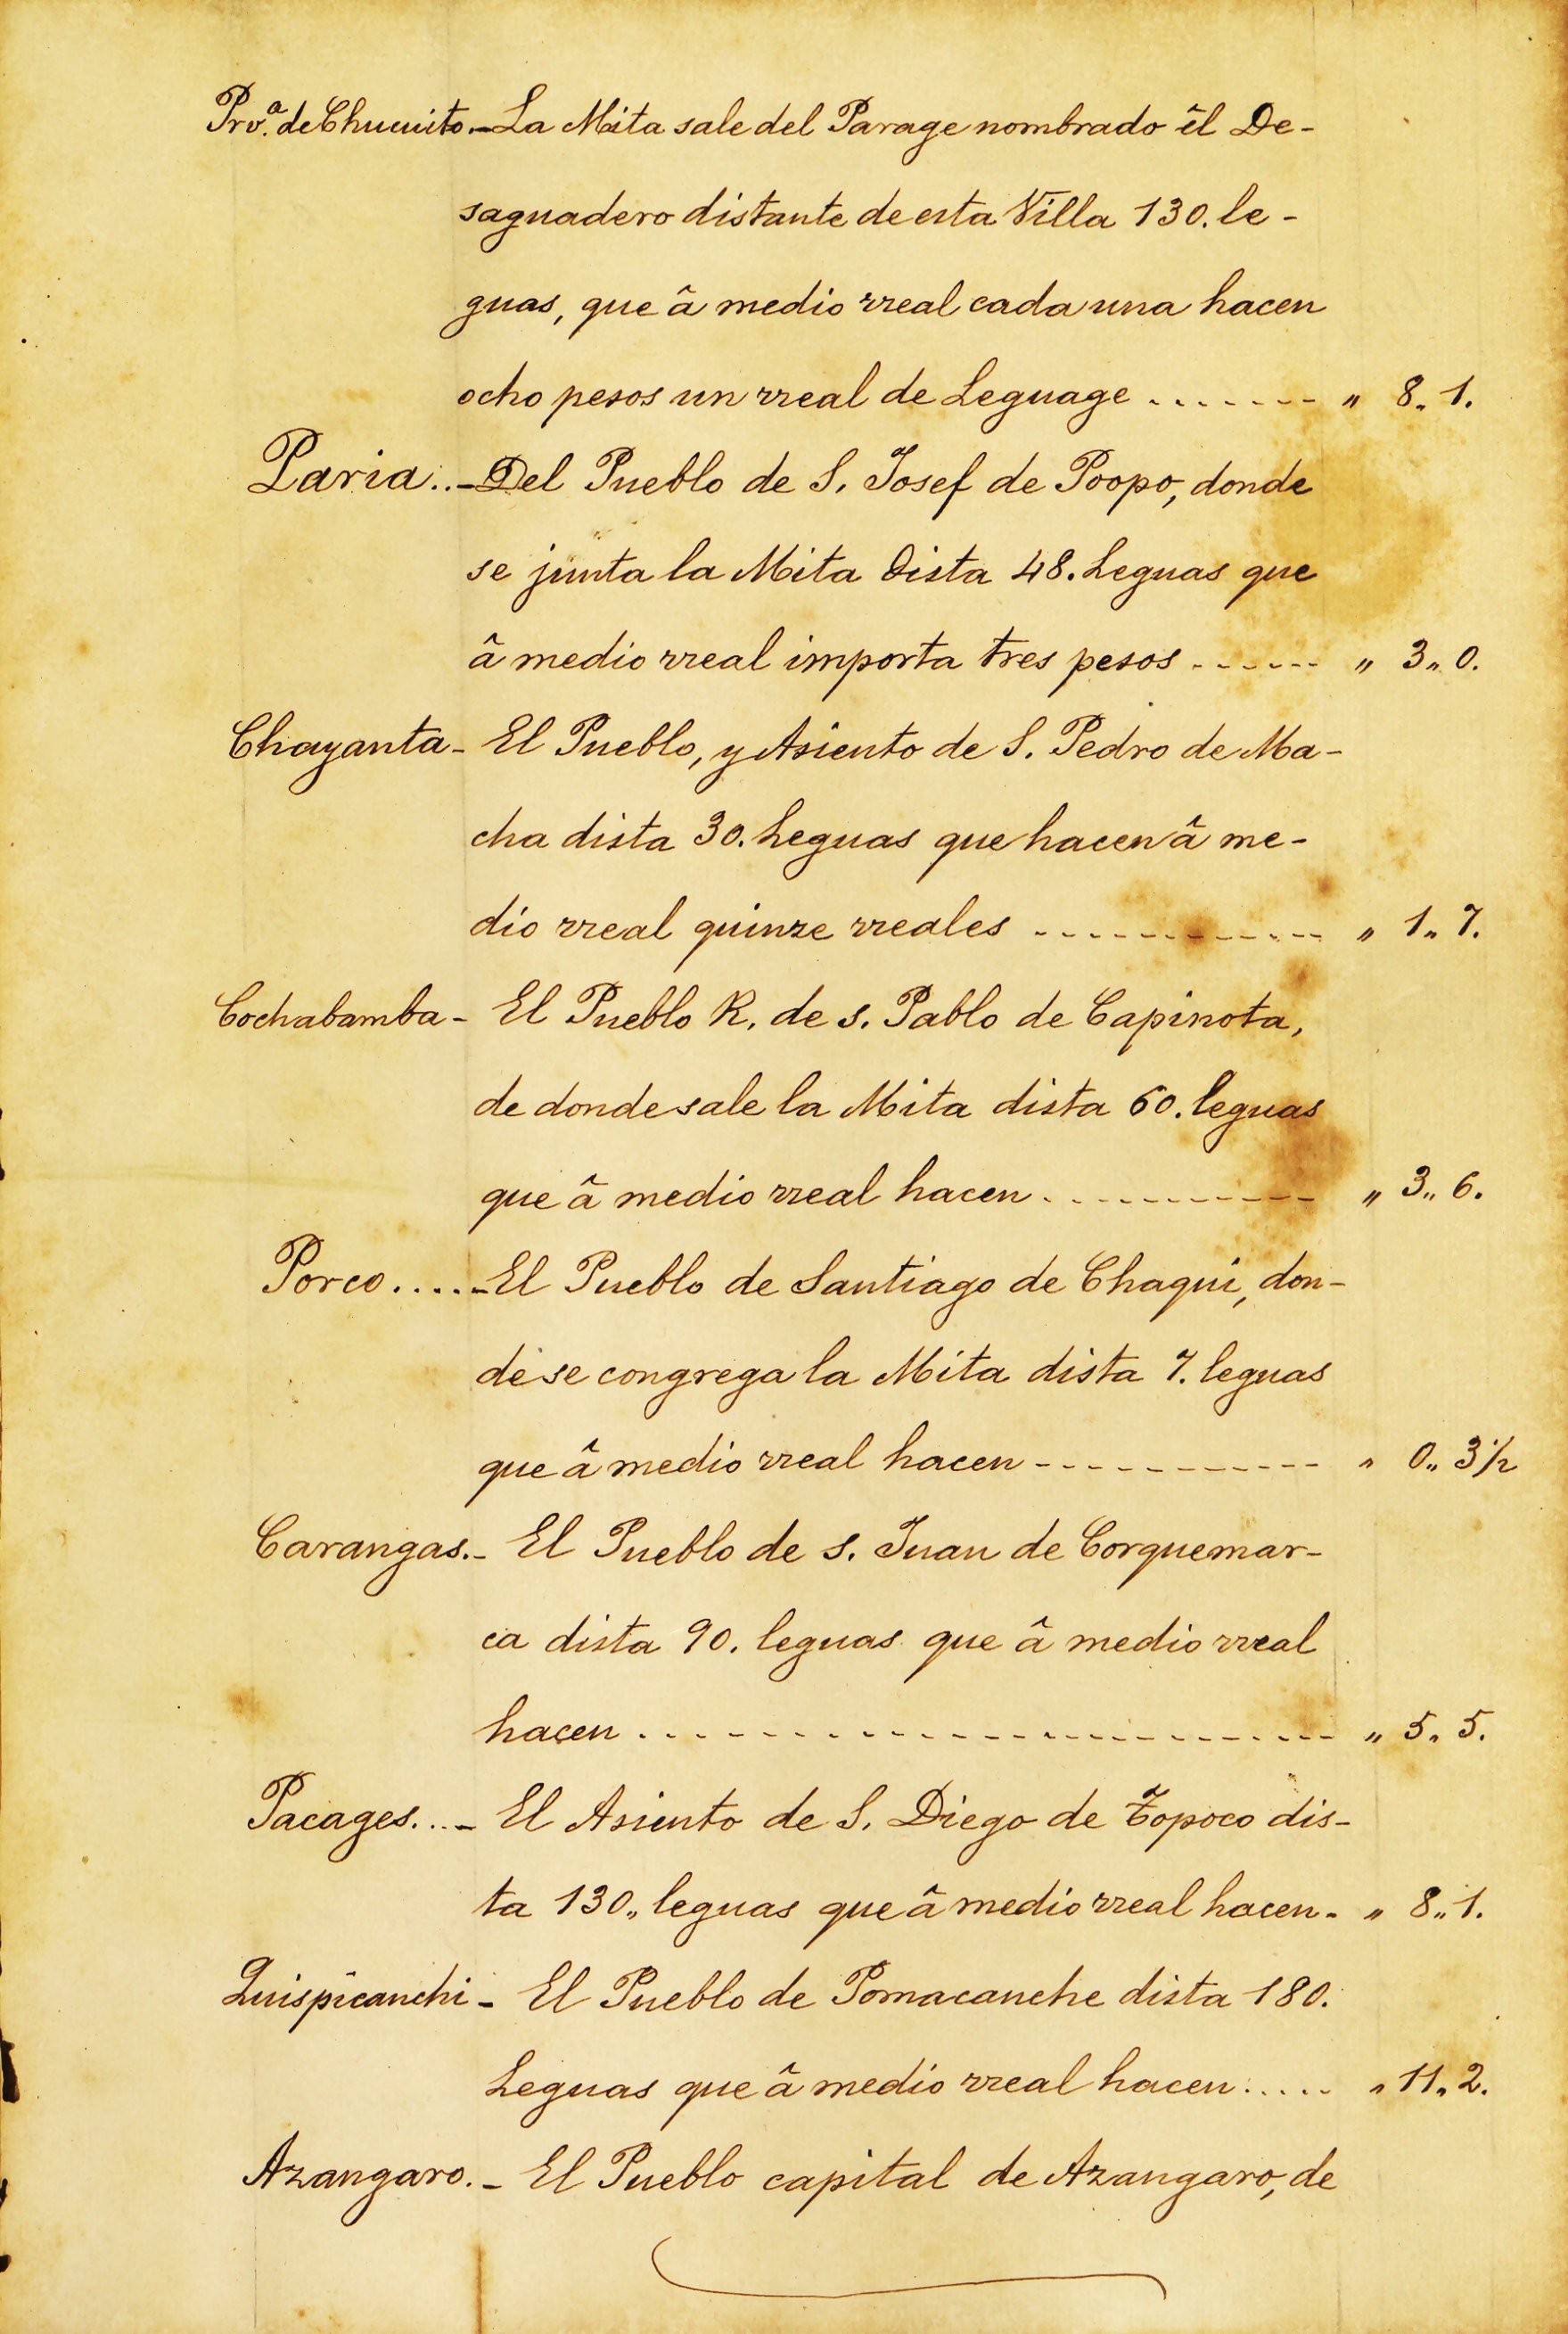 Prov.ª de Chucuito.-La Mita sale del Parage nombrado êl De-
saguadero distante de esta Villa 130. le-
guas, que â medio rreal cada una hacen
ocho pesos un rreal de Leguage ....... „ 8„ 1.
Paria..-Del Pueblo de S. Josef de Poopo, donde
se junta la Mita dista 48. Leguas que
â medio rreal importa tres pesos ...... „ 3„ 0.
Chayanta- El Pueblo, y Asiento de S. Pedro de Ma-
cha dista 30. Leguas que hacen â me-
dio rreal quinze rreales ............ „ 1„ 7.
Cochabamba- El Pueblo R. de s. Pablo de Capinota,
de donde sale la Mita dista 60. leguas
que â medio rreal hacen ........... „ 3„ 6.
Porco....-El Pueblo de Santiago de Chaqui, don-
de se congrega la Mita dista 7. leguas
que â medio rreal hacen ----------- „ 0„ 3½
Carangas.- El Pueblo de s. Juan de Corquemar-
ca dista 90. leguas que â medio rreal
hacen ........................ „ 5„ 5.
Pacages...- El Asiento de S. Diego de Topoco dis-
ta 130„ leguas que â medio rreal hacen. „ 8„ 1.
Quispicanchi- El Pueblo de Pomacanche dista 180.
Leguas que â medio rreal hacen ..... „ 11„ 2.
Azangaro.- El Pueblo capital de Azangaro, de